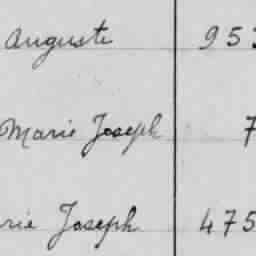 Auguste 953
Marie Joseph 7
rie Joseph 475